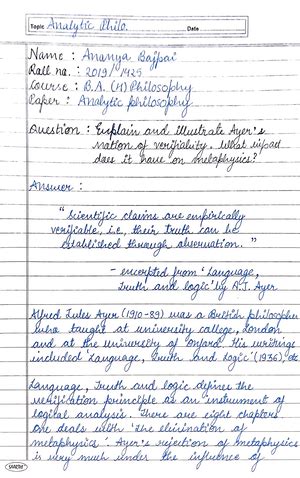 Topic Analytic Philo. Date
Name : Ananya Bajpai
Roll no. : 2019/1425
Course : B.A. (H) Philosophy
Paper : Analytic philosophy
Question : Explain and illustrate Ayer's
notion of verifiability. What impact
does it have on metaphysics?
Answer :
" Scientific claims are empirically
verifiable, i.e, their truth can be
established through observation. "
- excerpted from 'Language,
Truth and logic' by A.J. Ayer
Alfred Jules Ayer (1910-89) was a British philosopher
who taught at university college, London
and at the university of Oxford. His writings
included 'Language, truth and logic' (1936), etc.
Language, Truth and logic defines the
verification principle as an instrument of
logical analysis. There are eight chapters
one deals with 'the elimination of
metaphysics'. Ayer's rejection of metaphysics
is very much under the influence of